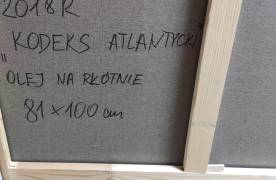 2018R
"KODEKS ATLANTYCKI"
OLEJ NA PŁÓTNIE
81 × 100 cm